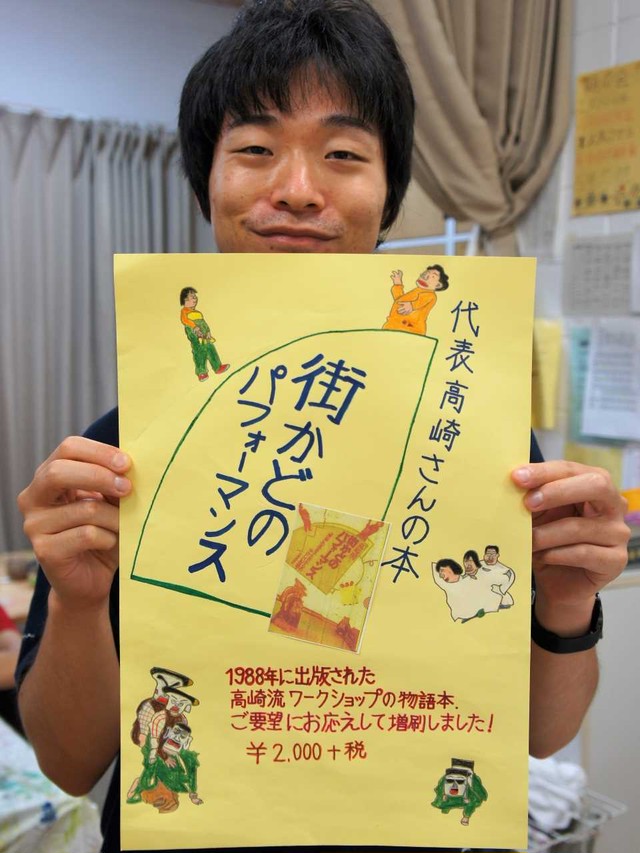 代表高崎さんの本
街かどの
パフォーマンス
街かどの
パフォーマンス
1988年に出版された
高崎流ワークショップの物語本.
ご要望にお応えして増刷しました!
￥2,000+税